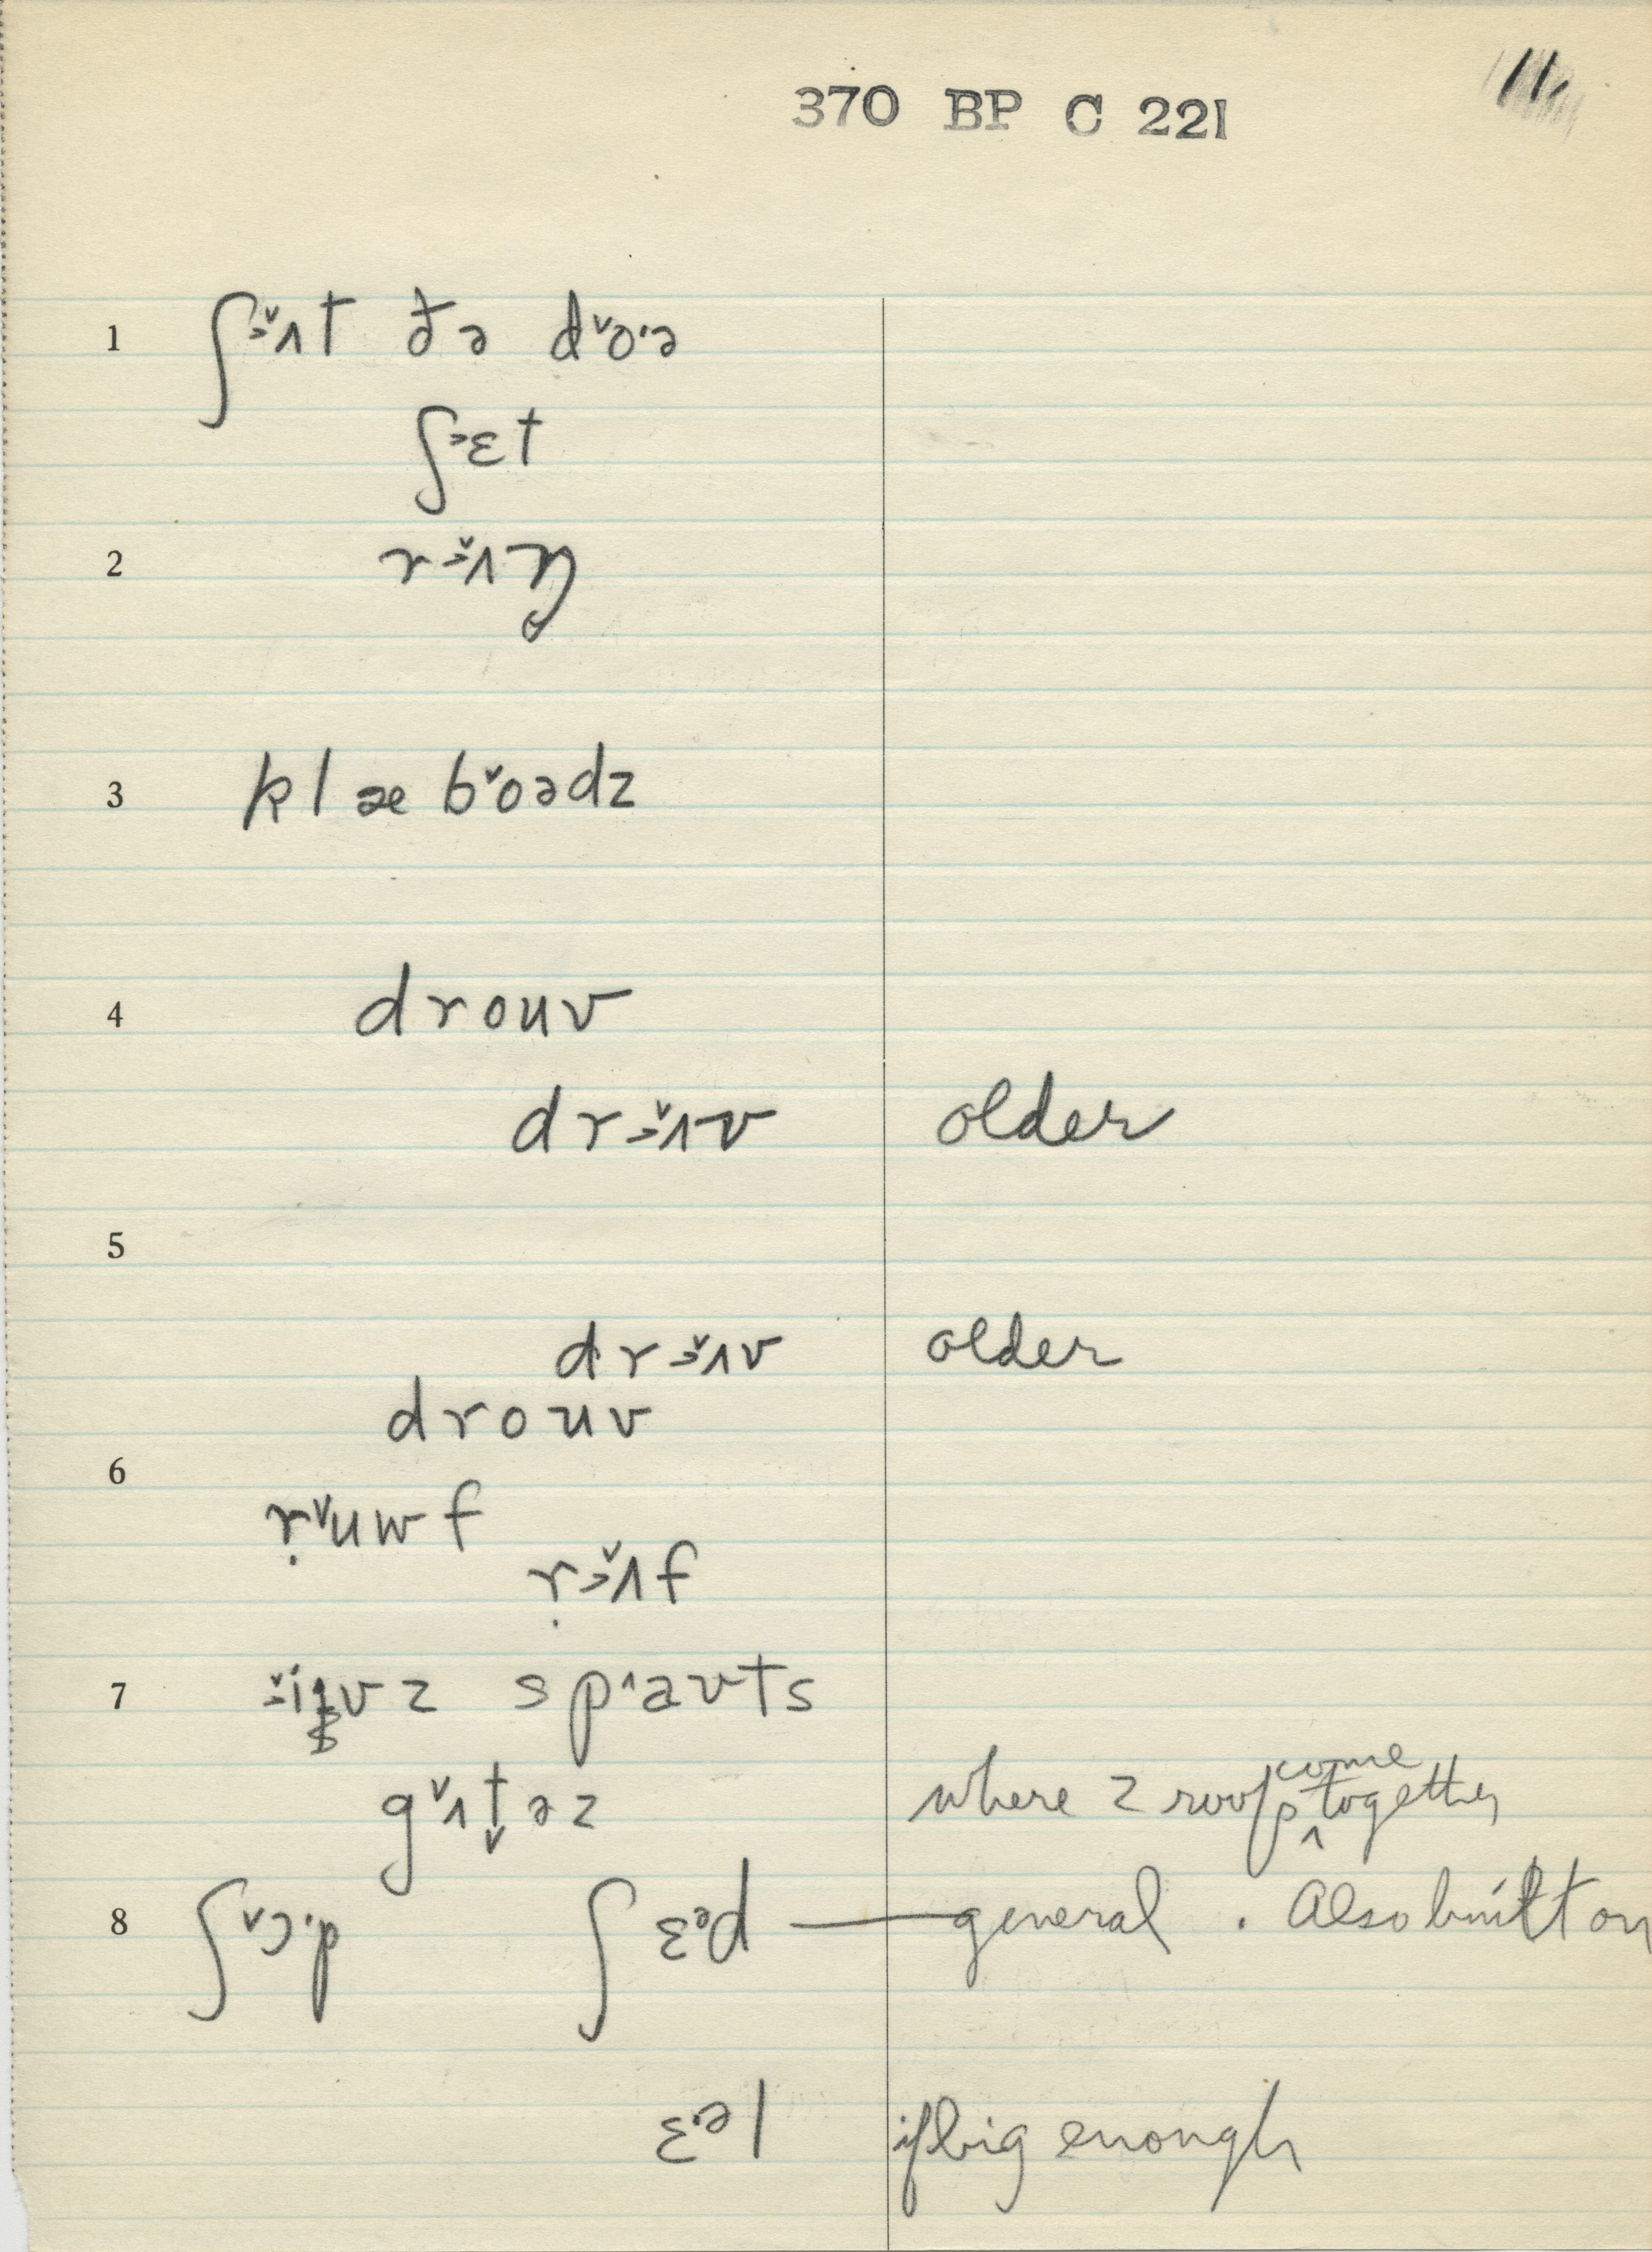 370 BP C 221
11
1 ʃɜ˅ʌt ðə d˅oˑə
ʃ˃ɛt
2 rɜ˅ʌŋ
3 klæb˅oədz
4 drouv
drɜ˅ʌv older
5
drɜ˅ʌv older
drouv
6
ṛ˅uwf
ṛɜ˅ʌf
7 spˆaʊts
g˅ʌt̬əz where 2 roofs come together
8 ʃ˅ɔˑp ʃɛᵊd — general . Also built on
ɛᵊl if big enough